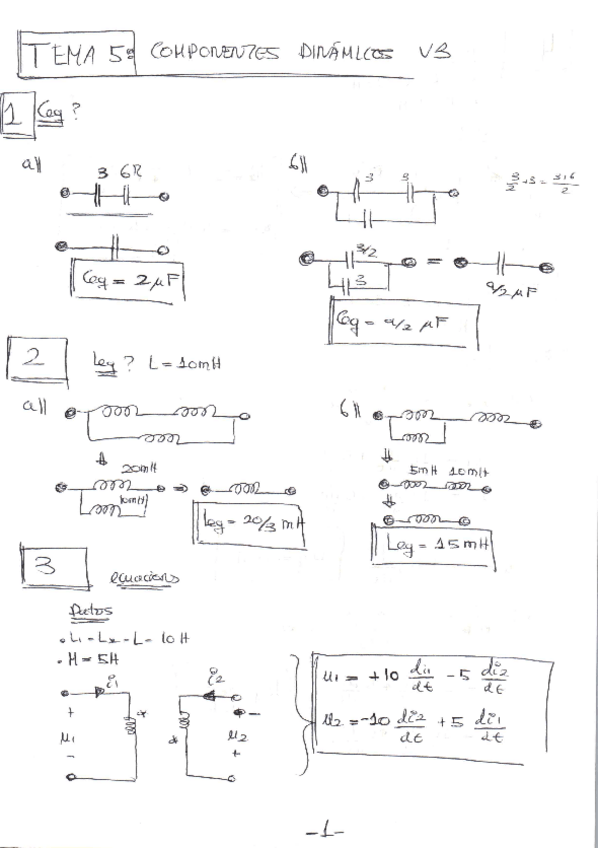 TEMA 5: COMPONENTES DINÁMICOS V3
1 Ceq ?
a||
3 6
b||
3 3
3/2
3
=
9/2 μF
Ceq = 2μF
Ceq = 9/2 μF
2 Leq ? L = 10mH
a||
b||
20mH
10mH
⇒
Leq = 20/3 mH
5mH 10mH
Leq = 15mH
3 ecuacions
Datos
. L1 = L2 = L = 10H
. M = 5H
i1 i2
+ * * -
μ1 μ2
- +
μ1 = +10 di1/dt - 5 di2/dt
μ2 = -10 di2/dt + 5 di1/dt
-1-